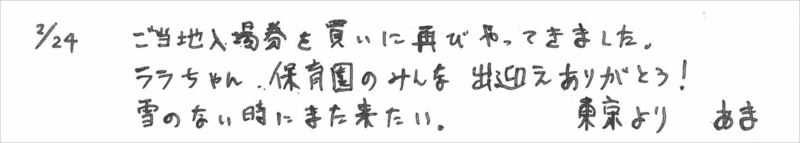 2/24 ご当地入場券を買いに再びやってきました。
ララちゃん、保育園のみんな 出迎えありがとう!
雪のない時にまた来たい。 東京より あま